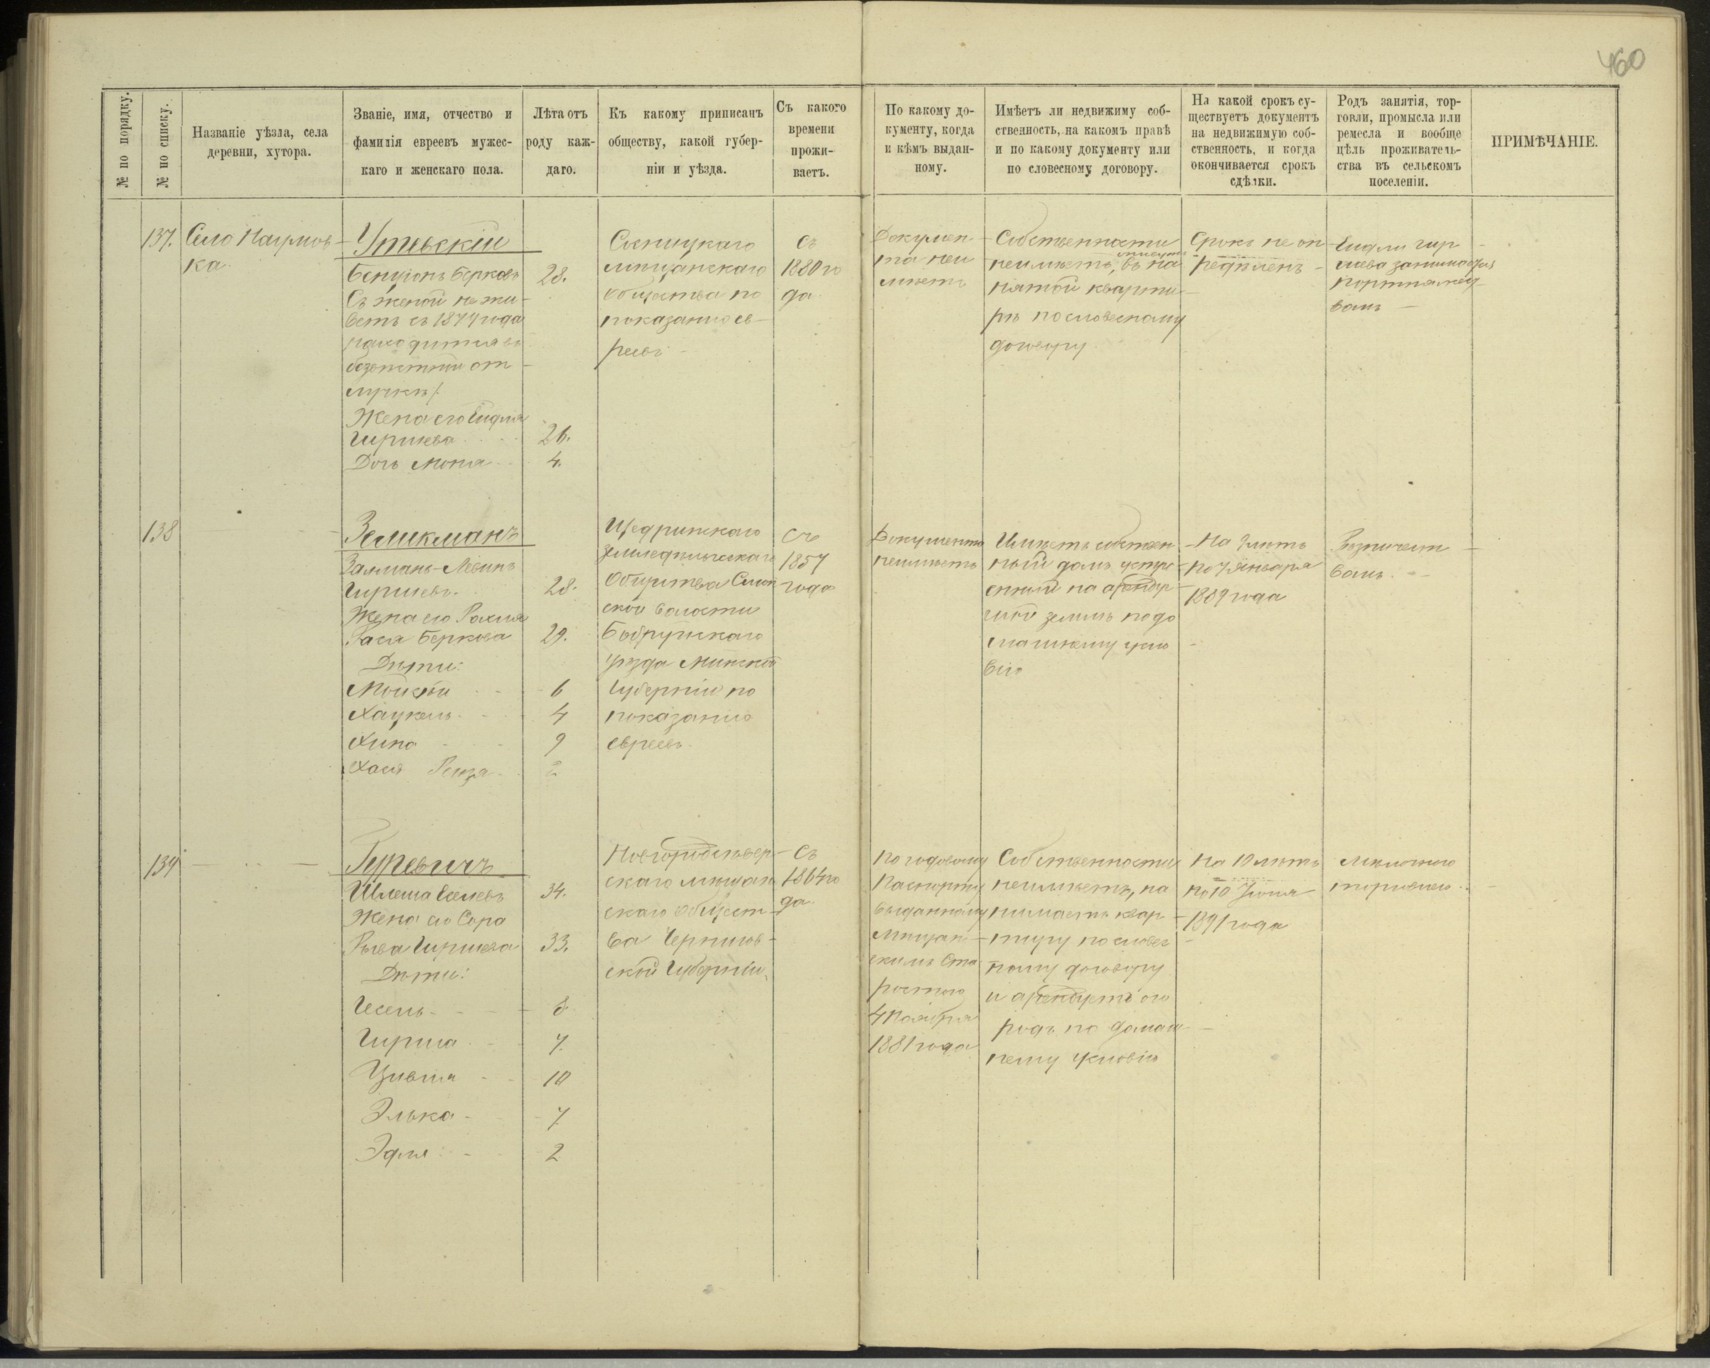 460
№ по порядку.
№ по списку.
Названіе уѣзда, села
деревни, хутора.
Званіе, имя, отчество и
фамилія евреевъ мужес-
каго и женскаго пола.
Лѣта отъ
роду каж-
даго.
Къ какому приписанъ
обществу, какой губер-
ніи и уѣзда.
Съ какого
времени
прожи-
ваетъ.
По какому до-
кументу, когда
и кѣмъ выдан-
ному.
Имѣетъ ли недвижиму соб-
ственность, на какомъ правѣ
и по какому документу или
по словесному договору.
На какой срокъ су-
ществуетъ документъ
на недвижимую соб-
ственность, и когда
окончивается срокъ
сдѣлки.
Родъ занятія, тор-
говли, промысла или
ремесла и вообще
цѣль проживатель-
ства въ сельскомъ
поселеніи.
ПРИМѢЧАНІЕ.
137.
Село Наумов-
ка.
Утевскій
Бенціонъ Берковъ
Съ женой не жи-
ветъ съ 1879 года
находится въ
безвѣстной от-
лучкѣ/.
Жена его
Гиршева
Дочь
28.
26.
4.
Сосницкаго
мѣщанскаго
общества по
показанію ев-
реевъ
съ
1880 го
да.
Докумен-
та неи
мѣетъ
Собственности
неимѣетъ, въ на
нятой кварти-
рѣ по словесному
договору
Срокъ не оп
редѣленъ
Гир
шева занимается
портняжес
вомъ
138
Зеликманъ
Залманъ-
Гиршевъ.
Жена его
Бася Беркова
Дѣти:
Мойсей
Хацкель
Хася
28.
29.
6
4
9
Щедринскаго
земледѣльческаго
общества
ской волости
Бобруйскаго
уѣзда Минской
Губерніи по
показанію
евреевъ.
Съ
1857
года
Документа
неимѣетъ
Имѣетъ собствен
ный домъ устро
енный на арендуе
мой землѣ по до
машнему усло
вію
На лѣтъ
по 7 Января
1889 года
вомъ.
139
Гуревичъ
Шлема
Жена его Сора
Рыва Гиршева
Дѣти:
Гирша
Цивія
Элька
Эдля
34.
33.
8
7.
10
7.
2
Новгородсѣвер-
скаго мѣщан
скаго общест-
ва Чернигов-
ской Губерніи.
Съ
1864 го
да.
По годовому
Паспорту
выданному
Мѣщан-
скимъ Ста
ростою
4 Ноября
1881 года
Собственности
неимѣетъ, на
нимаетъ квар
тиру по словес
ному договору
и арендуетъ ого
родъ по домаш
нему условію
На 10 лѣтъ
по 10 Іюня
1891 года
Мелочною
торговлею.